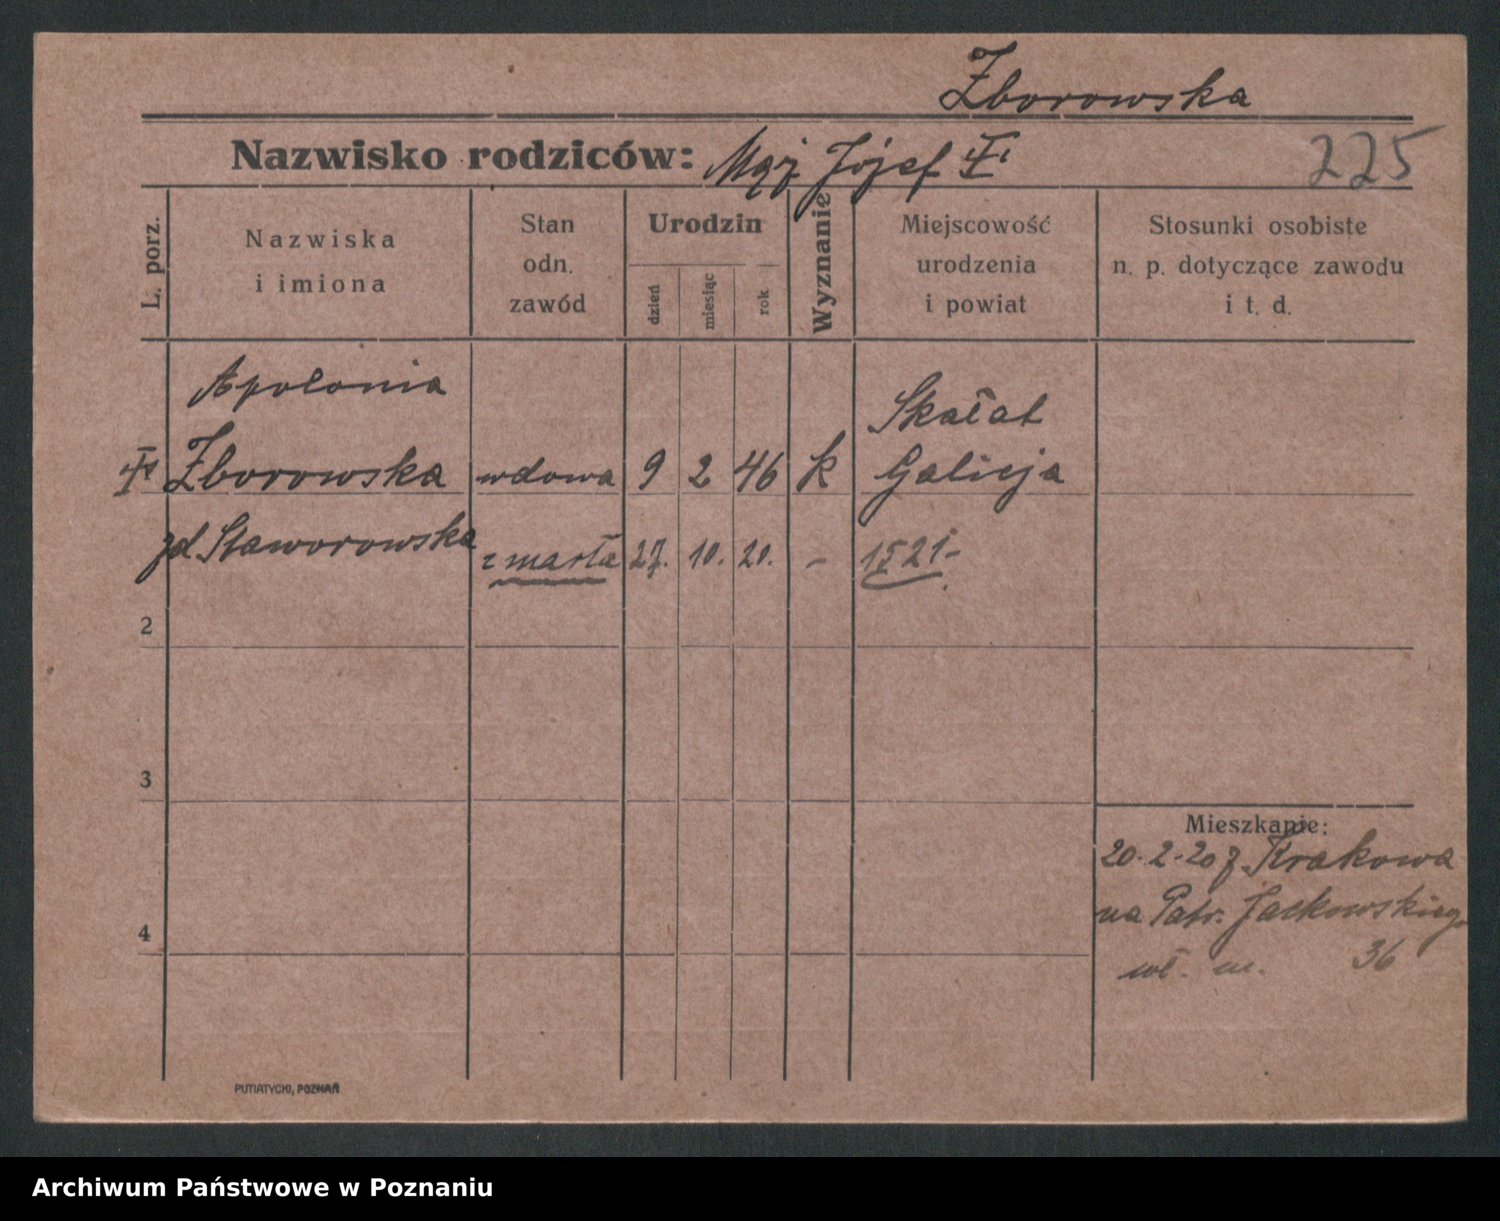 Zborowska
Nazwisko rodziców: Mąż Józef
225
L. porz.
Nazwiska
i imiona
Stan
odn.
zawód
Urodzin
dzień
miesiąc
rok
Wyznanie
Miejscowość
urodzenia
i powiat
Stosunki osobiste
n. p. dotyczące zawodu
i t. d.
Apolonia
Zborowska wdowa 9 2 46 k Skałat
Galicja
zd. Staworowska zmarła 27. 10. 20. – 1521-
2
3
4
Mieszkanie:
20.2.20 z Krakowa
na Patr. Jackowskiego
wł. m. 36
PUTIATYCKI, POZNAŃ
Archiwum Państwowe w Poznaniu